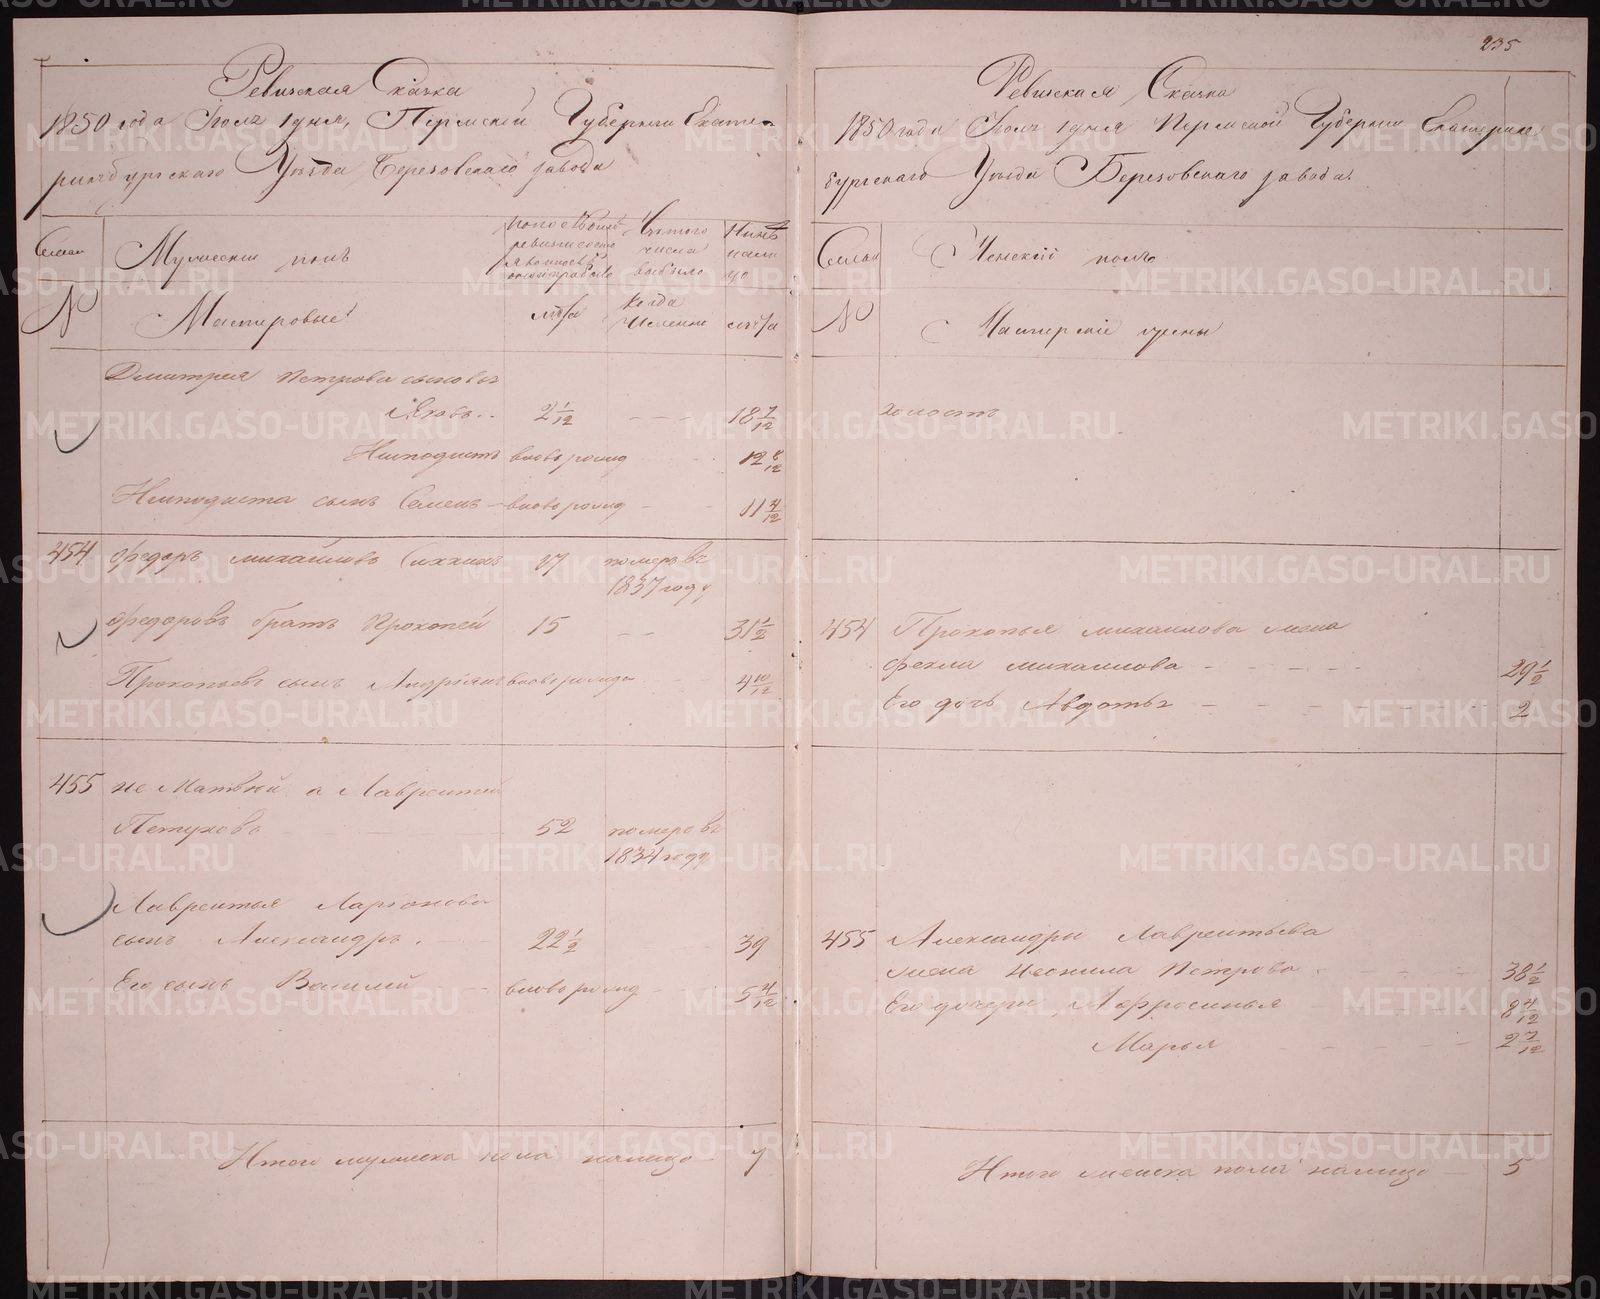 235
Ревижская Скачка
1850 года Iюля 1 дня, Пермской Губернiи Екате-
ринбургскаго Уѣзда Березовскаго завода
Семьи
Мужескiй полъ
По последней
ревизiи состо
яло
Изъ того
числа
выбыло
Нынѣ
нали
цо
№
Мастеровые
лѣта
Когда
именно
лѣта
Дмитрея Петрова сыновья
Яковъ 2 1/12 — — 18 7/12
Иподистъ вновь рожд 12 8/12
Иподиста сынъ Семенъ — вновь рожд - - 11 4/12
454 Федоръ Михайловъ 17 померъ въ
1837 году
Федоровъ братъ Прокопей 15 — — 31 1/2
Прокопьевъ сынъ Андрiянъ вновь рожд 4 10/12
455 не Матвѣй а Лаврентей
Петуховъ 52 померъ въ
1834 году
Лаврентья Ларiонова
сынъ Александръ. 22 1/2 39
Его сынъ Василiй вновь рожд 5 4/12
Итого мужеска пола налицо 7
Ревижская Скачка
1850 года Iюля 1 дня Пермской Губернiи Екатерин
бургскаго Уѣзда Березовскаго завода.
Семьи
Женскiй полъ
№
Мастерскiе жены
холостъ
454 Прокопья Михайлова жена
Фекла Михайлова - - - - - 29 1/2
Его дочь Авдотья - - - - - 2
455 Александры Лаврентьева
жена Неонила Петрова - - - - 38 1/2
Его дочери, Афросинья 8 4/12
Марья - - - - 2 7/12
Итого женска пола налицо — 5
METRIKI.GASO-URAL.RU